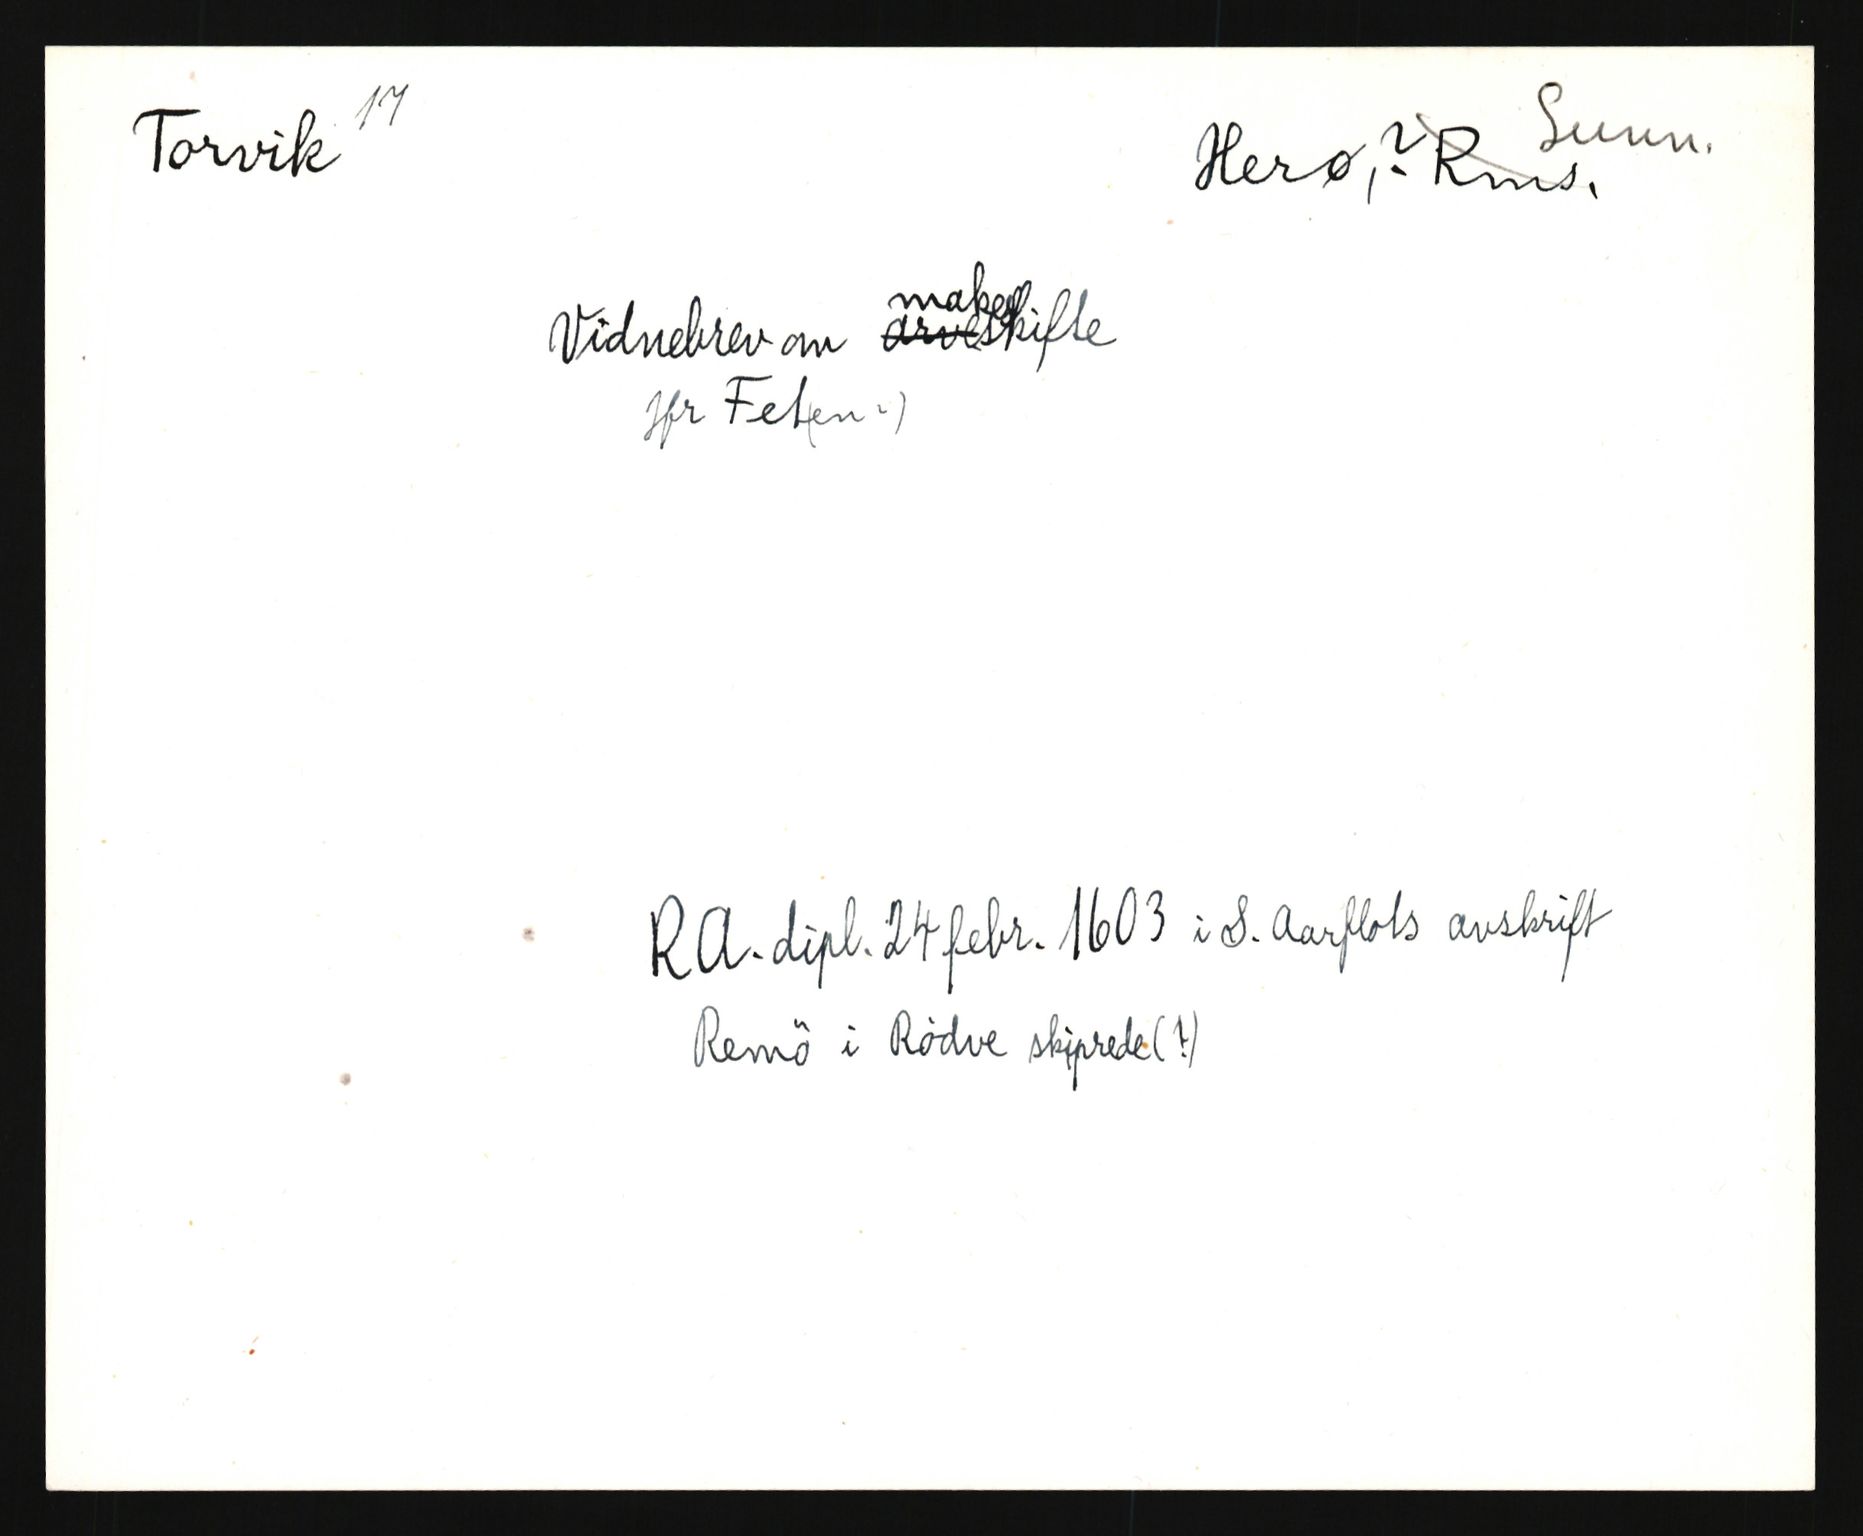 Torvik 17
Herø, ? Rms. Sunn.
Vidnebrev om arveskifte
make
Jfr Fet(en?)
RA. dipl. 24 febr. 1603 i S. Aarflots avskrift
Remö i Rödve skiprede (!)